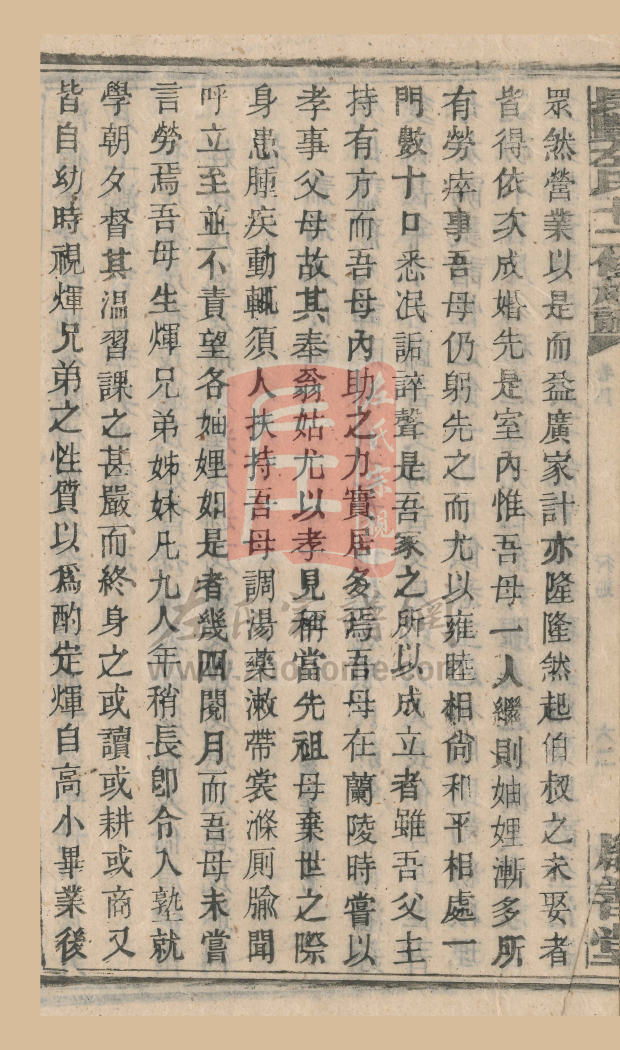 眾然營業以是而益廣家計亦隆隆然起伯叔之未娶者
皆得依次成婚先是室內惟吾母一人繼則妯娌漸多所
有勞瘁事吾母仍躬先之而尤以雍睦相尙和平相處一
門數十口悉泯詬誶聲是吾家之所以成立者雖吾父主
持有方而吾母內助之力實居多焉吾母在蘭陵時嘗以
孝事父母故其奉翁姑尤以孝見稱當先祖母棄世之際
身患腫疾動輒須人扶持吾母調湯藥漱帶裳滌厠牏聞
呼立至並不責望各妯娌如是者幾四閱月而吾母未嘗
言勞焉吾母生煇兄弟姊妹凡九人年稍長卽令入塾就
學朝夕督其溫習課之甚嚴而終身之或讀或耕或商又
皆自幼時視煇兄弟之性質以爲酌定煇自高小畢業後
左氏宗親